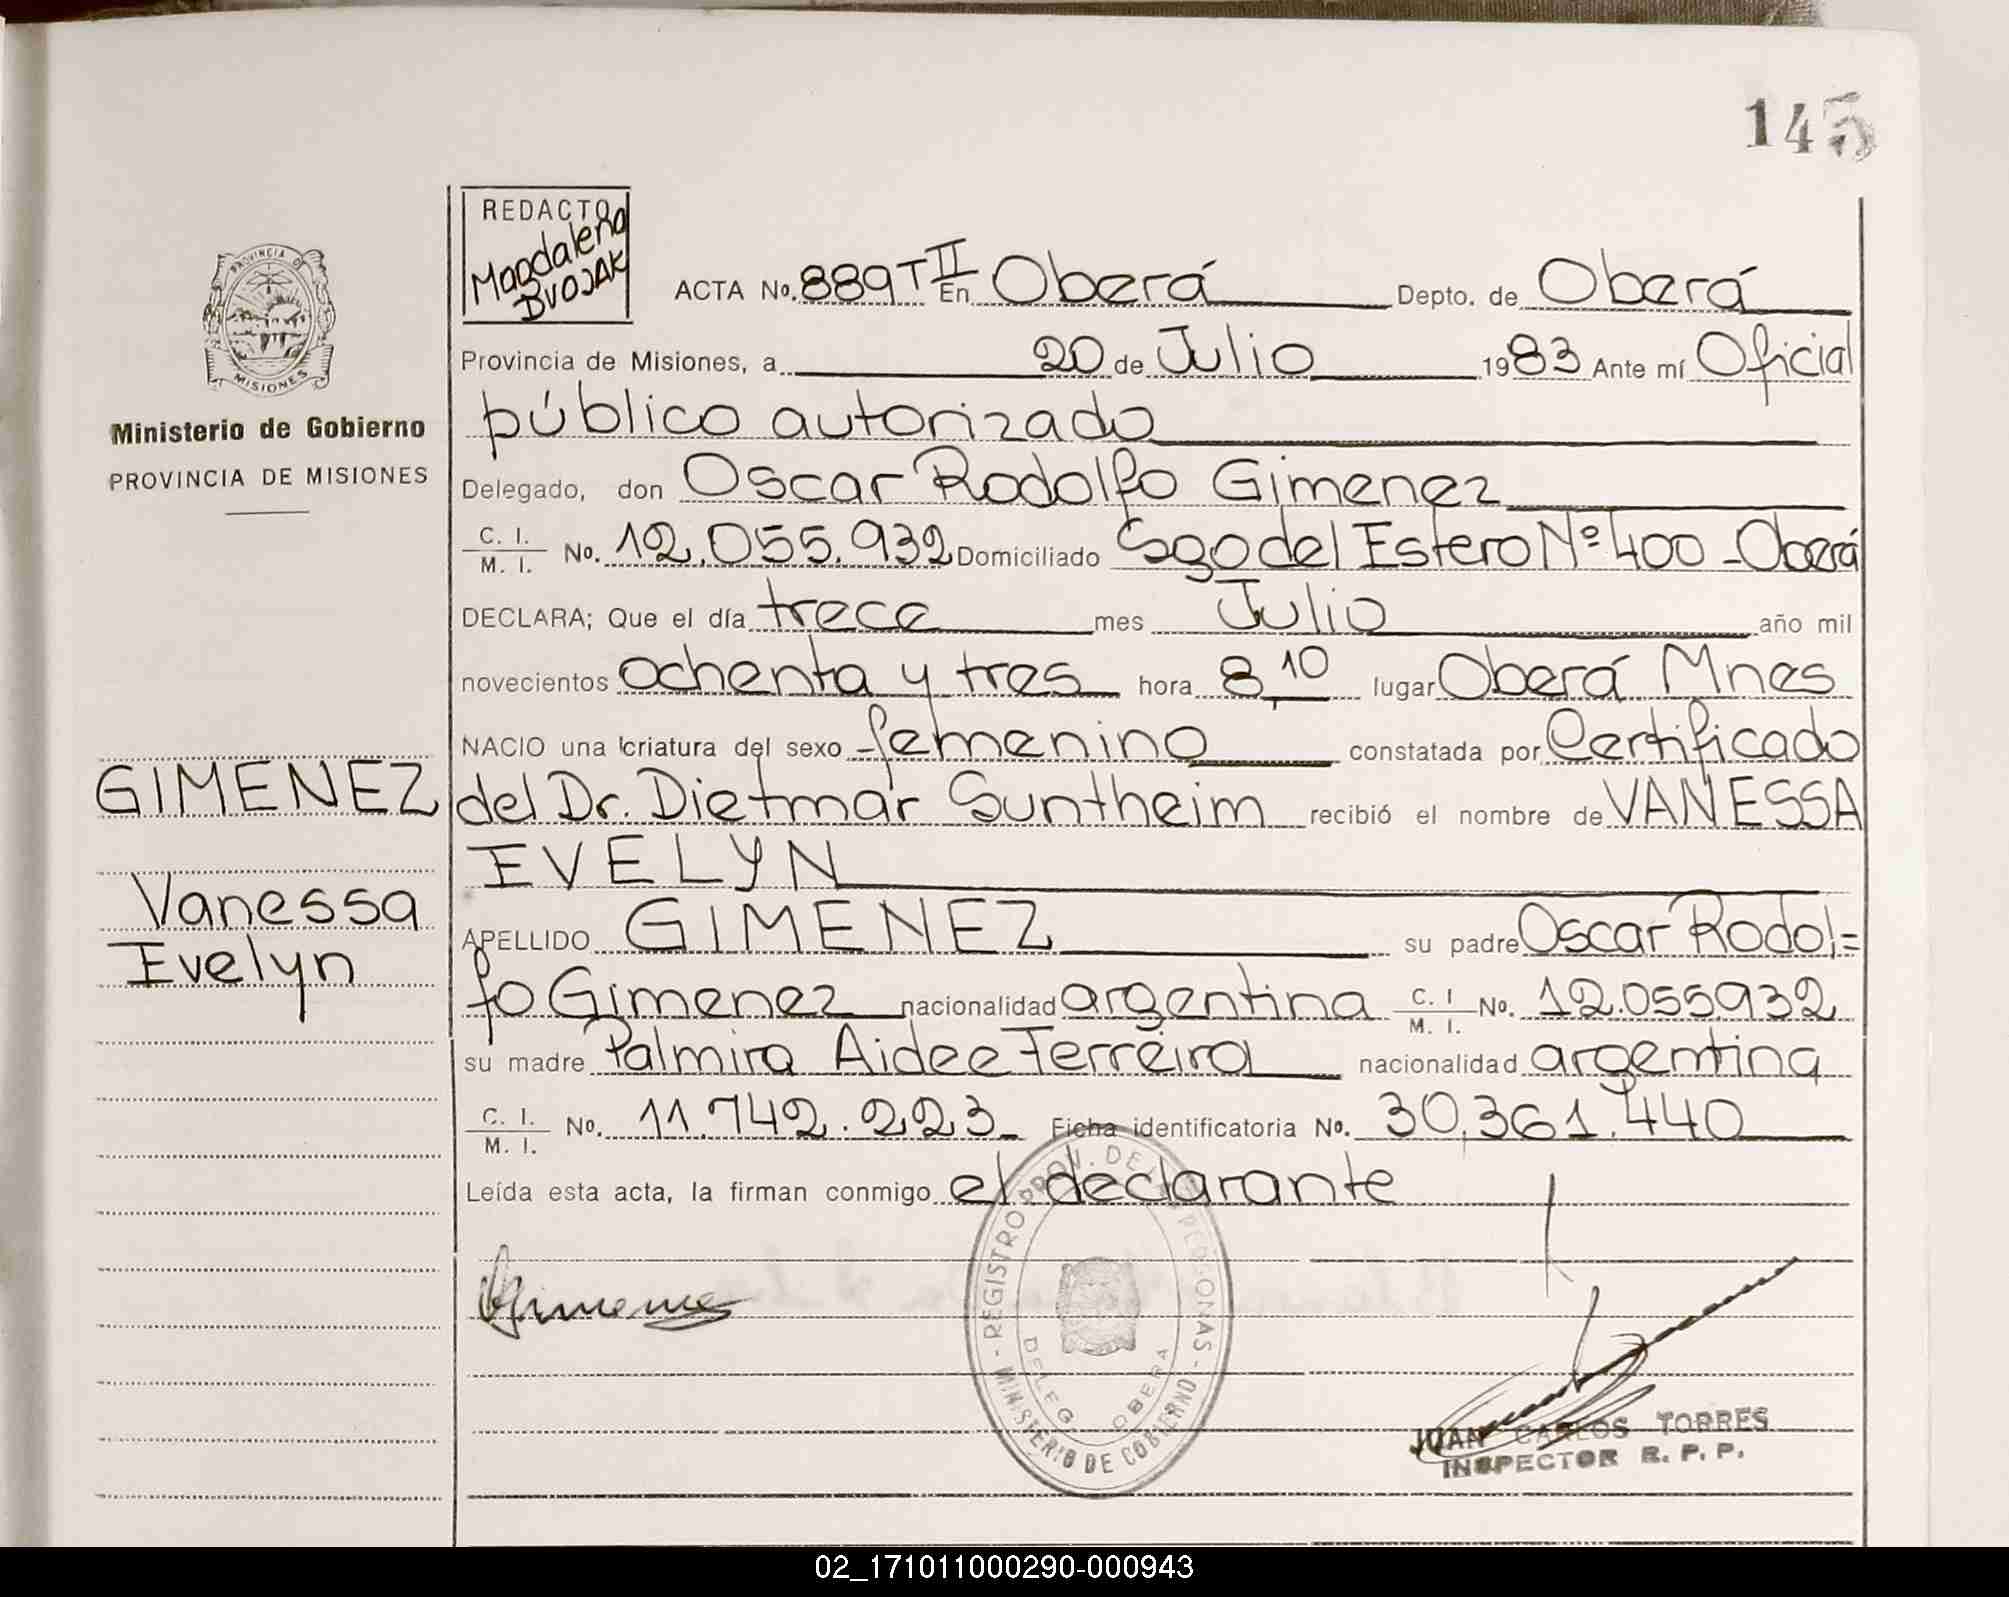 145
REDACTO
Magdalena
DVOJAK
PROVINCIA DE
MISIONES
Ministerio de Gobierno
PROVINCIA DE MISIONES
GIMENEZ
Vanessa
Evelyn
ACTA No. 889 T II En Oberá Depto. de Oberá
Provincia de Misiones, a 20 de Julio 1983 Ante mí Oficial
público autorizado
Delegado, don Oscar Rodolfo Gimenez
C. I. / M. I. No. 12.055.932 Domiciliado Sgo del Estero Nº 400 - Oberá
DECLARA; Que el día trece mes Julio año mil
novecientos ochenta y tres hora 8,10 lugar Oberá Mnes
NACIO una criatura del sexo femenino constatada por Certificado
del Dr. Dietmar Suntheim recibió el nombre de VANESSA
EVELYN
APELLIDO GIMENEZ su padre Oscar Rodol=
fo Gimenez nacionalidad argentina C. I / M. I. No. 12.055.932
su madre Palmira Aidee Ferreira nacionalidad argentina
C. I. / M. I. No. 11.742.223 Ficha identificatoria No. 30.361.440
Leída esta acta, la firman conmigo el declarante
Gimenez
REGISTRO PROV. DE LAS PERSONAS - MINISTERIO DE GOBIERNO -
DELEG OBERA
JUAN CARLOS TORRES
INSPECTOR R. P. P.
02_171011000290-000943